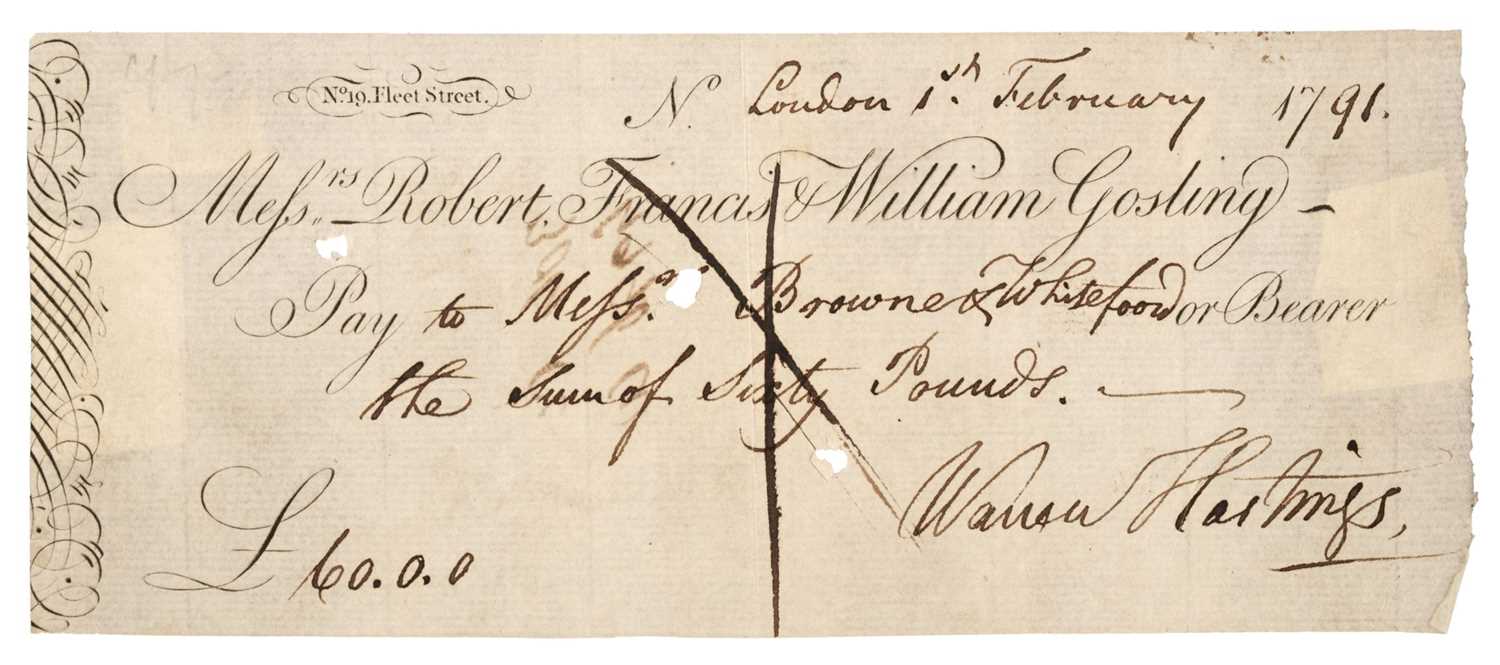 No. 19. Fleet Street.
No. London 1st. February 1791.
Messrs. Robert, Francis & William Gosling
Pay to Messrs. Browne & Whitefoord or Bearer
the Sum of Sixty Pounds.
Warren Hastings,
£ 60.0.0